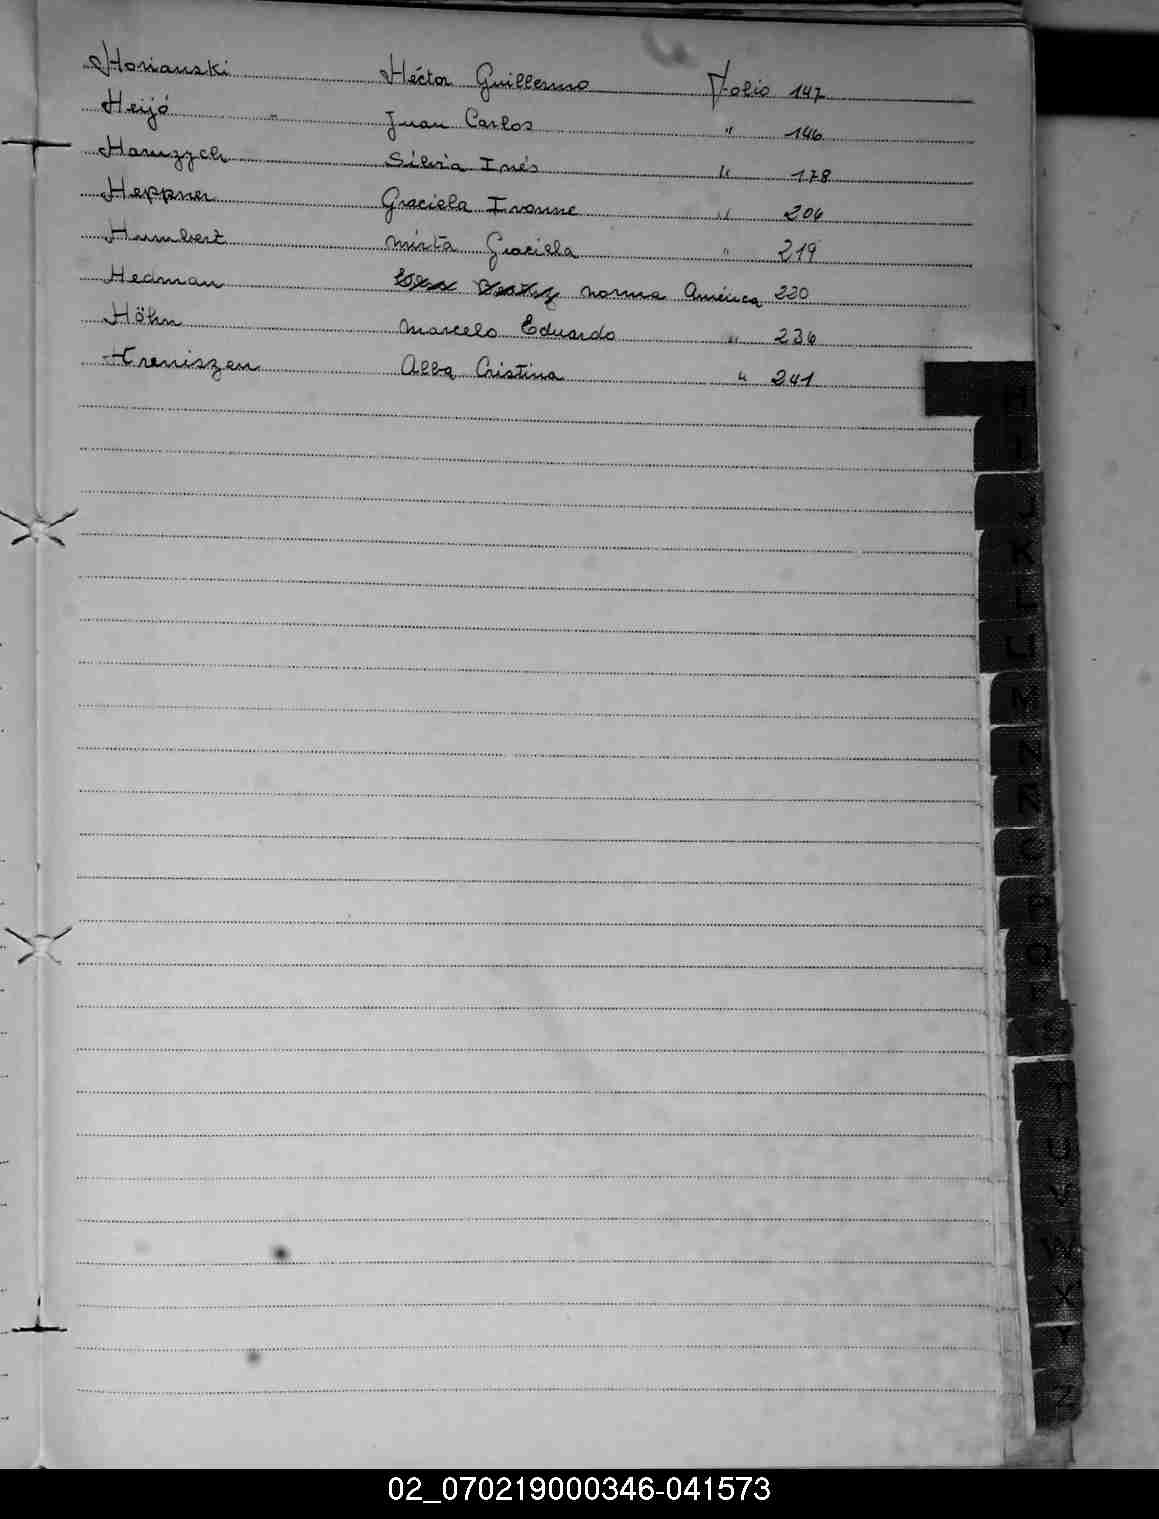 Horianski Héctor Guillermo Folio 147
Heijó " Juan Carlos " 146
Hamzych Silvia Inés " 178
Heppner Graciela Ivonne " 204
Humbert Mirta Graciela " 219
Hedman Norma América 220
Höhn Marcelo Eduardo " 236
Hreniszen Alba Cristina " 241
H
I
J
K
L
LL
M
N
Ñ
O
P
Q
R
S
T
U
V
W
X
Y
Z
02_070219000346-041573